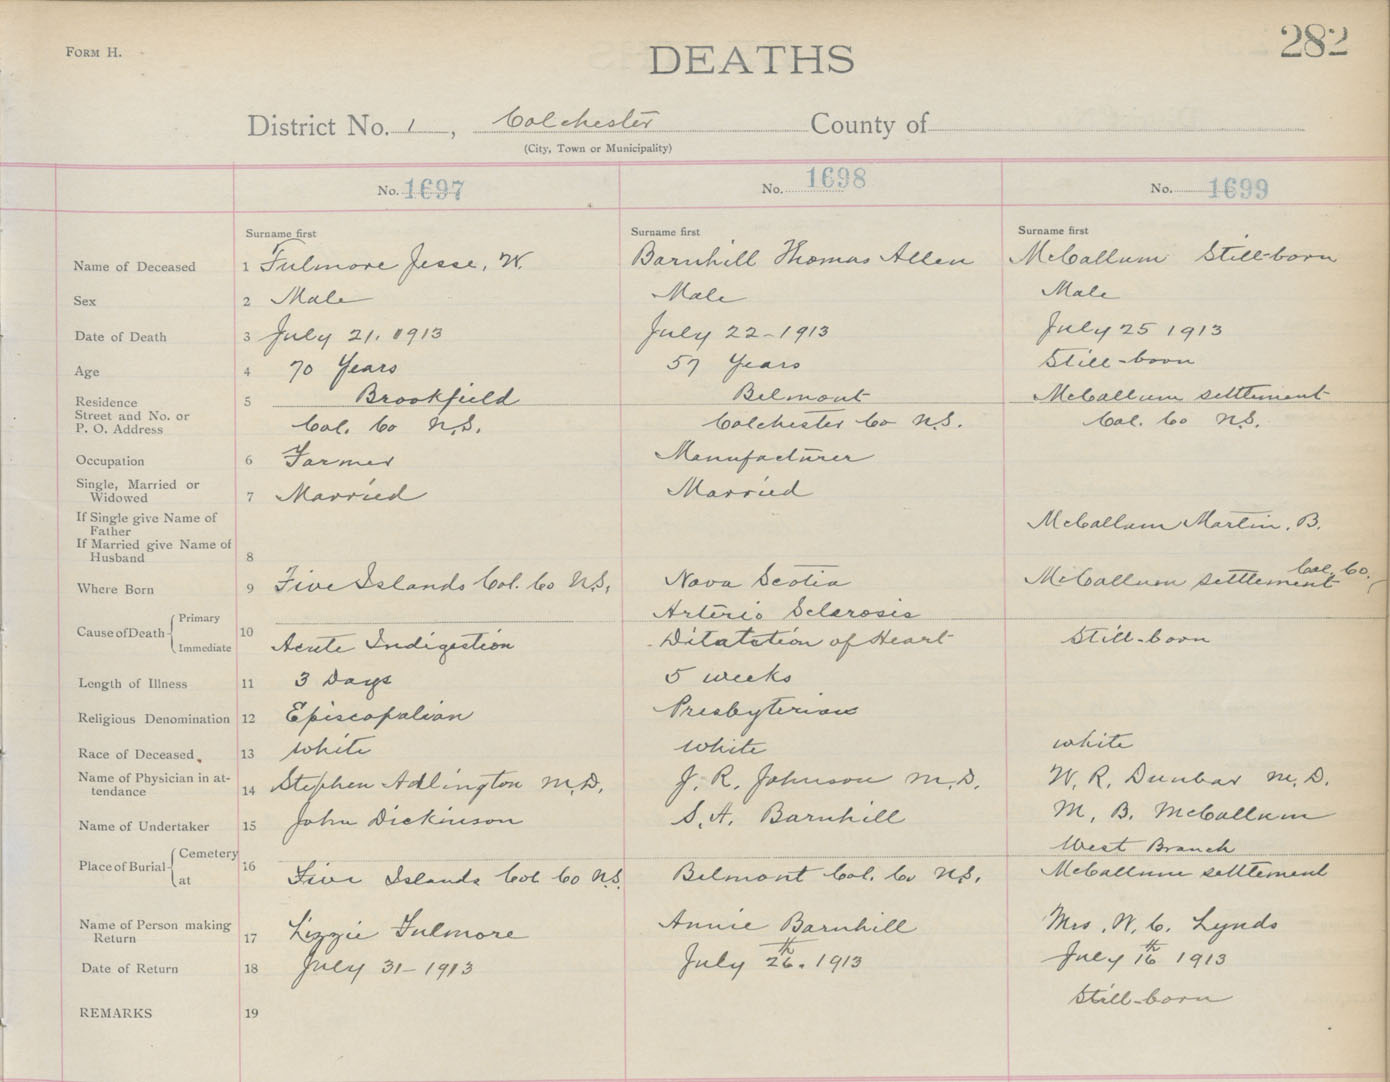 Form H.
DEATHS
282
District No. 1, Colchester County of
(City, Town or Municipality)
No. 1697 No. 1698 No. 1699
Surname first Surname first Surname first
Name of Deceased 1 Fulmore Jesse, W. Barnhill Thomas Allen McCallum Still-born
Sex 2 Male Male Male
Date of Death 3 July 21, 1913 July 22-1913 July 25 1913
Age 4 70 Years 57 Years Still-born
Residence 5 Brookfield Belmont McCallum settlement
Street and No. or
P. O. Address Col. Co N.S. Colchester Co N.S. Col. Co N.S.
Occupation 6 Farmer Manufacturer
Single, Married or
Widowed 7 Married Married
If Single give Name of
Father McCallum Martin. B.
If Married give Name of
Husband 8
Where Born 9 Five Islands Col. Co N.S. Nova Scotia McCallum settlement Col. Co.
Cause of Death Primary 10 Arterio Sclerosis
Immediate Acute Indigestion Ditatation of Heart Still-born
Length of Illness 11 3 Days 5 weeks
Religious Denomination 12 Episcopalian Presbyterian
Race of Deceased 13 white white white
Name of Physician in at-
tendance 14 Stephen Adlington M.D. J. R. Johnson M.D. W. R. Dunbar M.D.
Name of Undertaker 15 John Dickinson S. A. Barnhill M. B. McCallum
Place of Burial Cemetery 16 West Branch
at Five Islands Col Co N.S. Belmont Col. Co N.S. McCallum settlement
Name of Person making
Return 17 Lizzie Fulmore Annie Barnhill Mrs. W. C. Lynds
Date of Return 18 July 31-1913 July 26th. 1913 July 16th 1913
REMARKS 19 Still-born